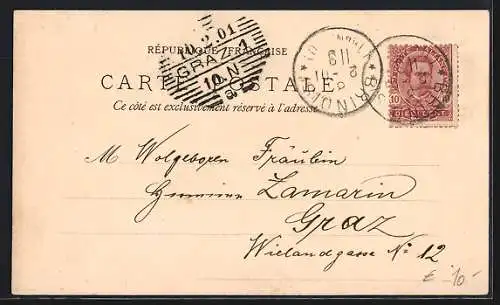 RÉPUBLIQUE FRANÇAISE
CARTE POSTALE
Ce côté est exclusivement réservé à l'adresse
GRAZ 1
10.N
BRINDISI
10
M Wolgeboren Fräulein
Zamarin
Graz
Wielandgasse No 12
£ -10-